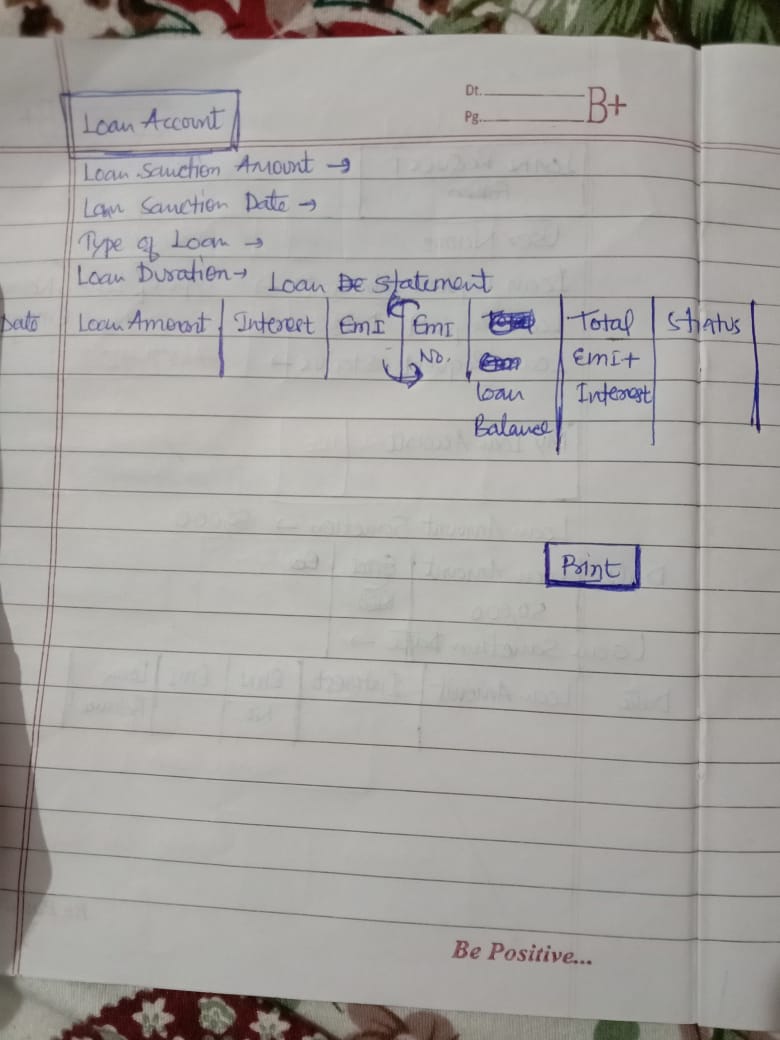 Dt.
B+
Pg.
Loan Account
Loan Sanction Amount →
Loan Sanction Date →
Type of Loan →
Loan Duration →
Loan Statement
Date | Loan Amount | Interest | EmI | EmI | Total | Status
No. EmI+
Loan Interest
Balance
Print
Be Positive...